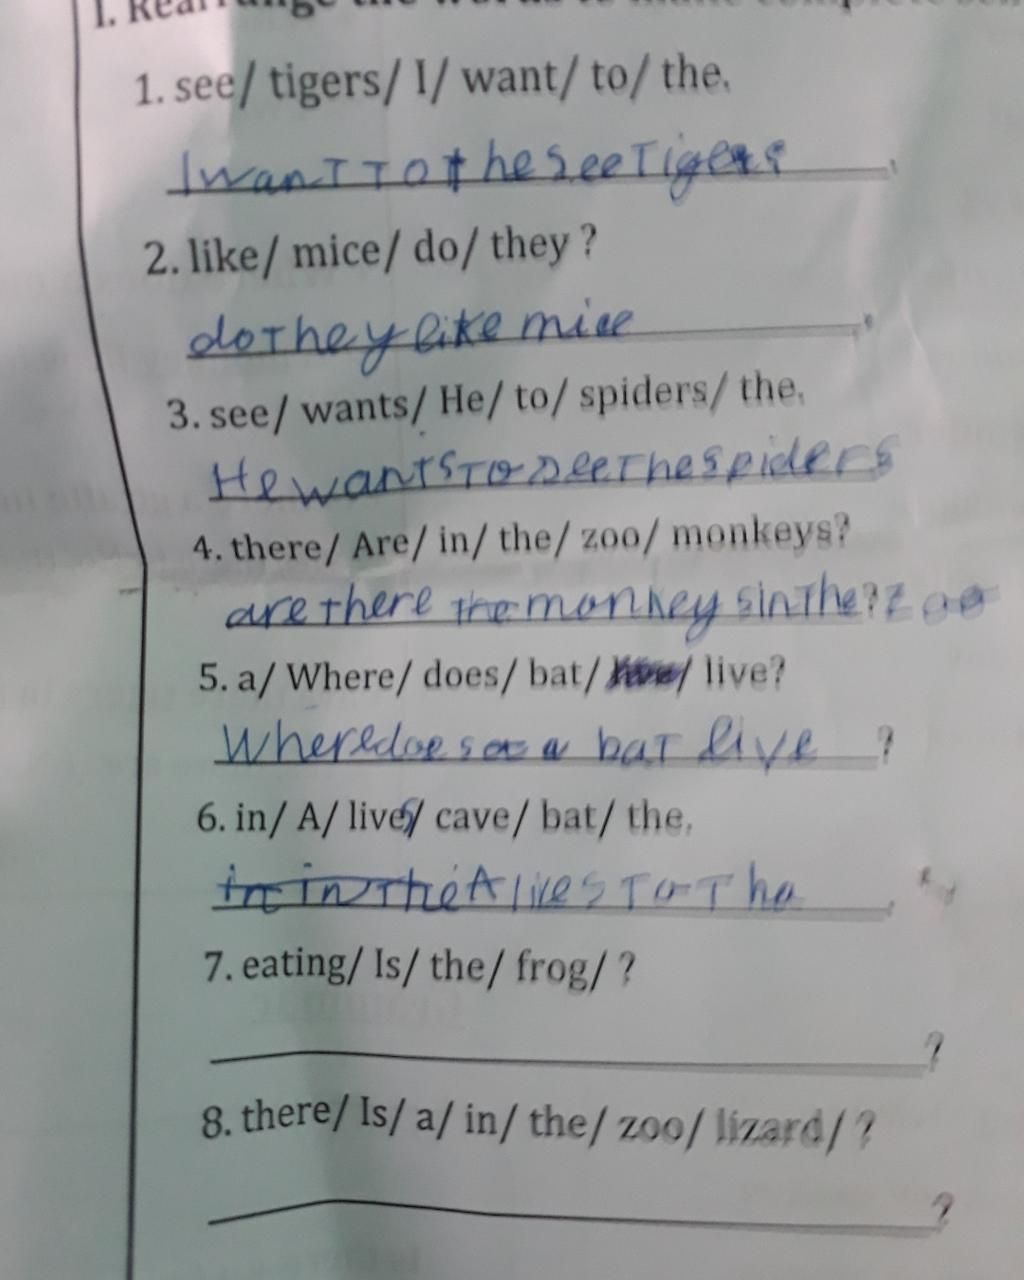 I. Rearrange the words to make complete sen
1. see/ tigers/ I/ want/ to/ the.
I wanT To the see Tigers
2. like/ mice/ do/ they ?
do They like mice
3. see/ wants/ He/ to/ spiders/ the.
He wanTs To see The spiders
4. there/ Are/ in/ the/ zoo/ monkeys?
are there the monkey s in The? Zoo
5. a/ Where/ does/ bat/ / live?
Where does a baT live ?
6. in/ A/ lives/ cave/ bat/ the.
in in The A lives To The
7. eating/ Is/ the/ frog/ ?
?
8. there/ Is/ a/ in/ the/ zoo/ lizard/ ?
?